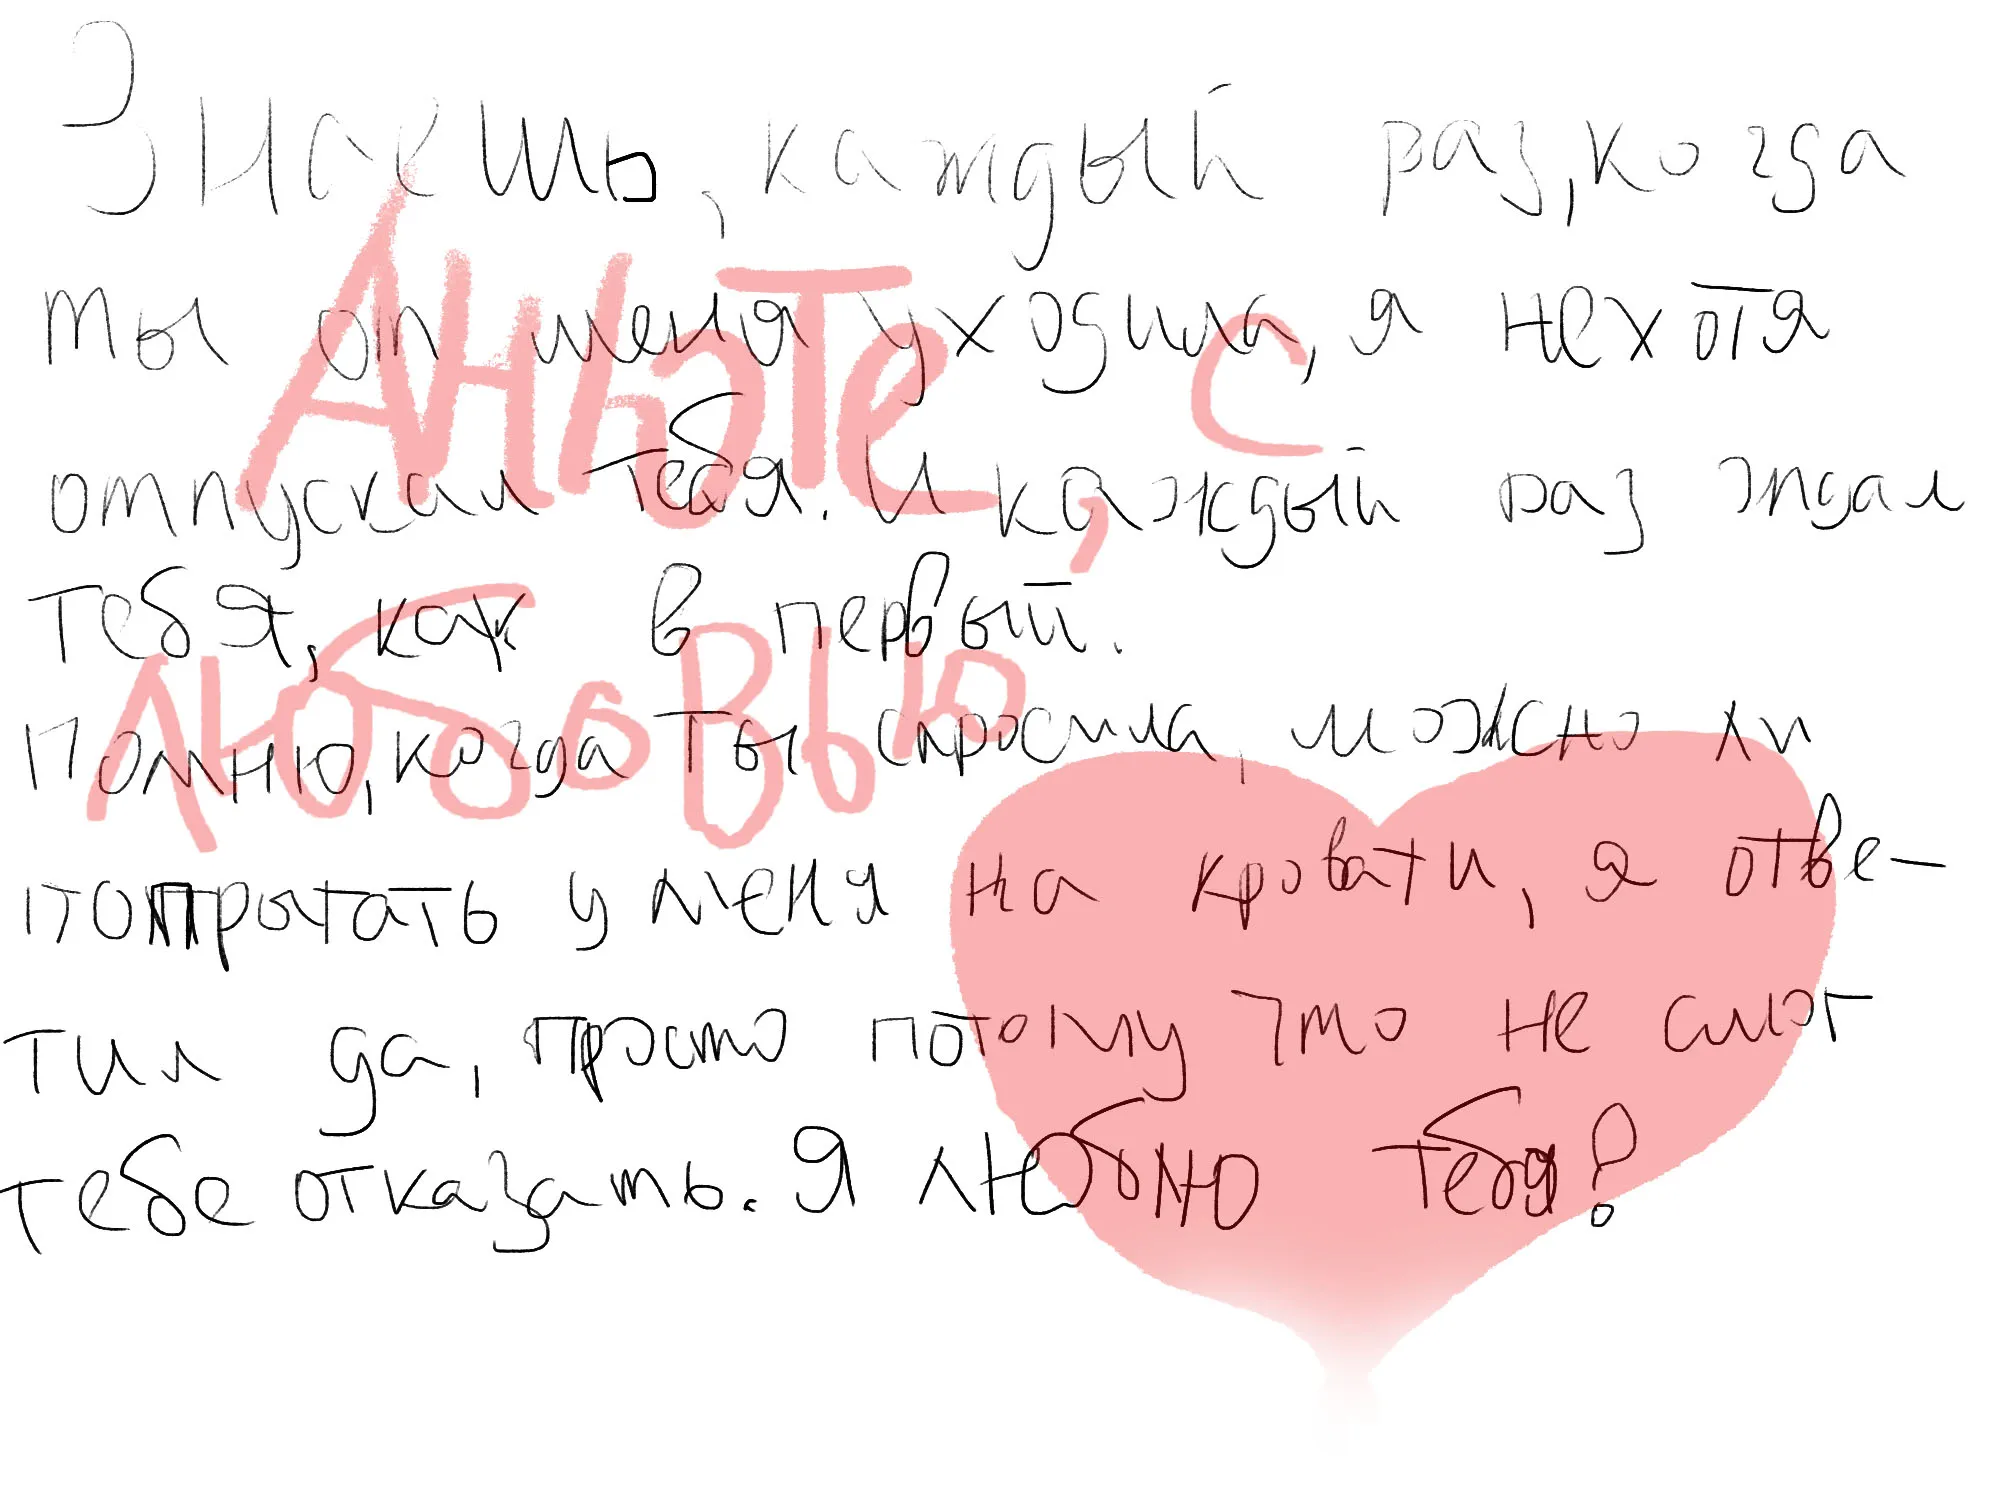 Знаешь, каждый раз, когда
ты от меня уходила, я нехотя
отпускал тебя. И каждый раз ждал
тебя, как в первый.
Помню, когда ты спросила, можно ли
попрыгать у меня на кровати, я отве-
тил да, просто потому что не смог
тебе отказать. Я люблю тебя?
Анюте, с
любовью